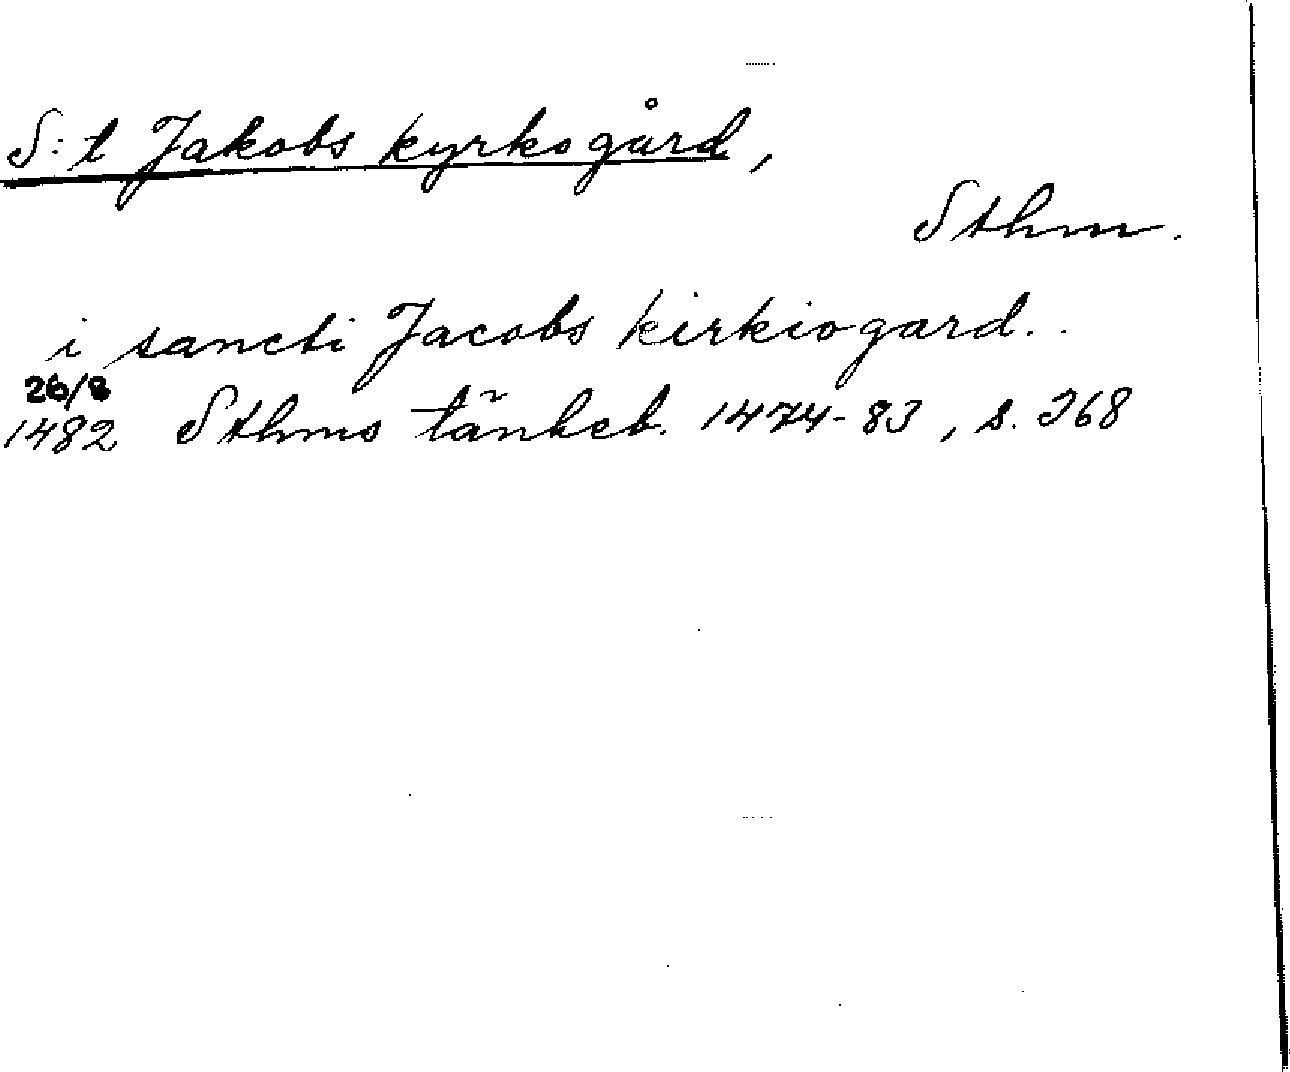 S:t Jakobs kyrkogård,
Sthm.
i sancti Jacobs kirkiogard..
26/8
1482 Sthms tänkeb. 1474-83, s. 368